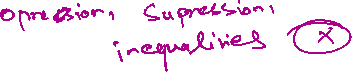 opression, supression,
inequalities X